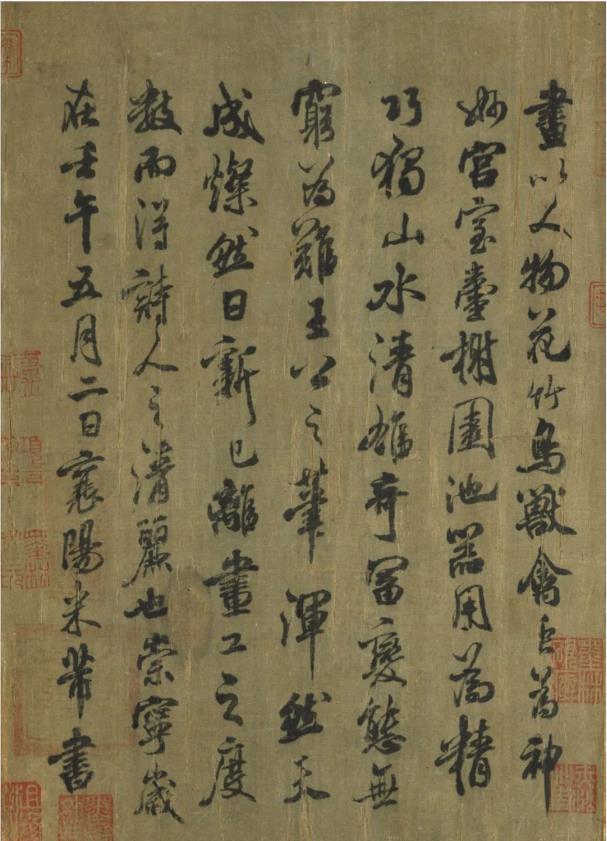 畫以人物花竹鳥獸禽為神
妙宮室臺榭園池器用為精
巧獨山水清雄奇富變態無
窮為難王公之筆渾然天
成燦然日新已離畫工之度
數而得詩人之清麗也崇寧歲
在壬午五月二日襄陽米芾書